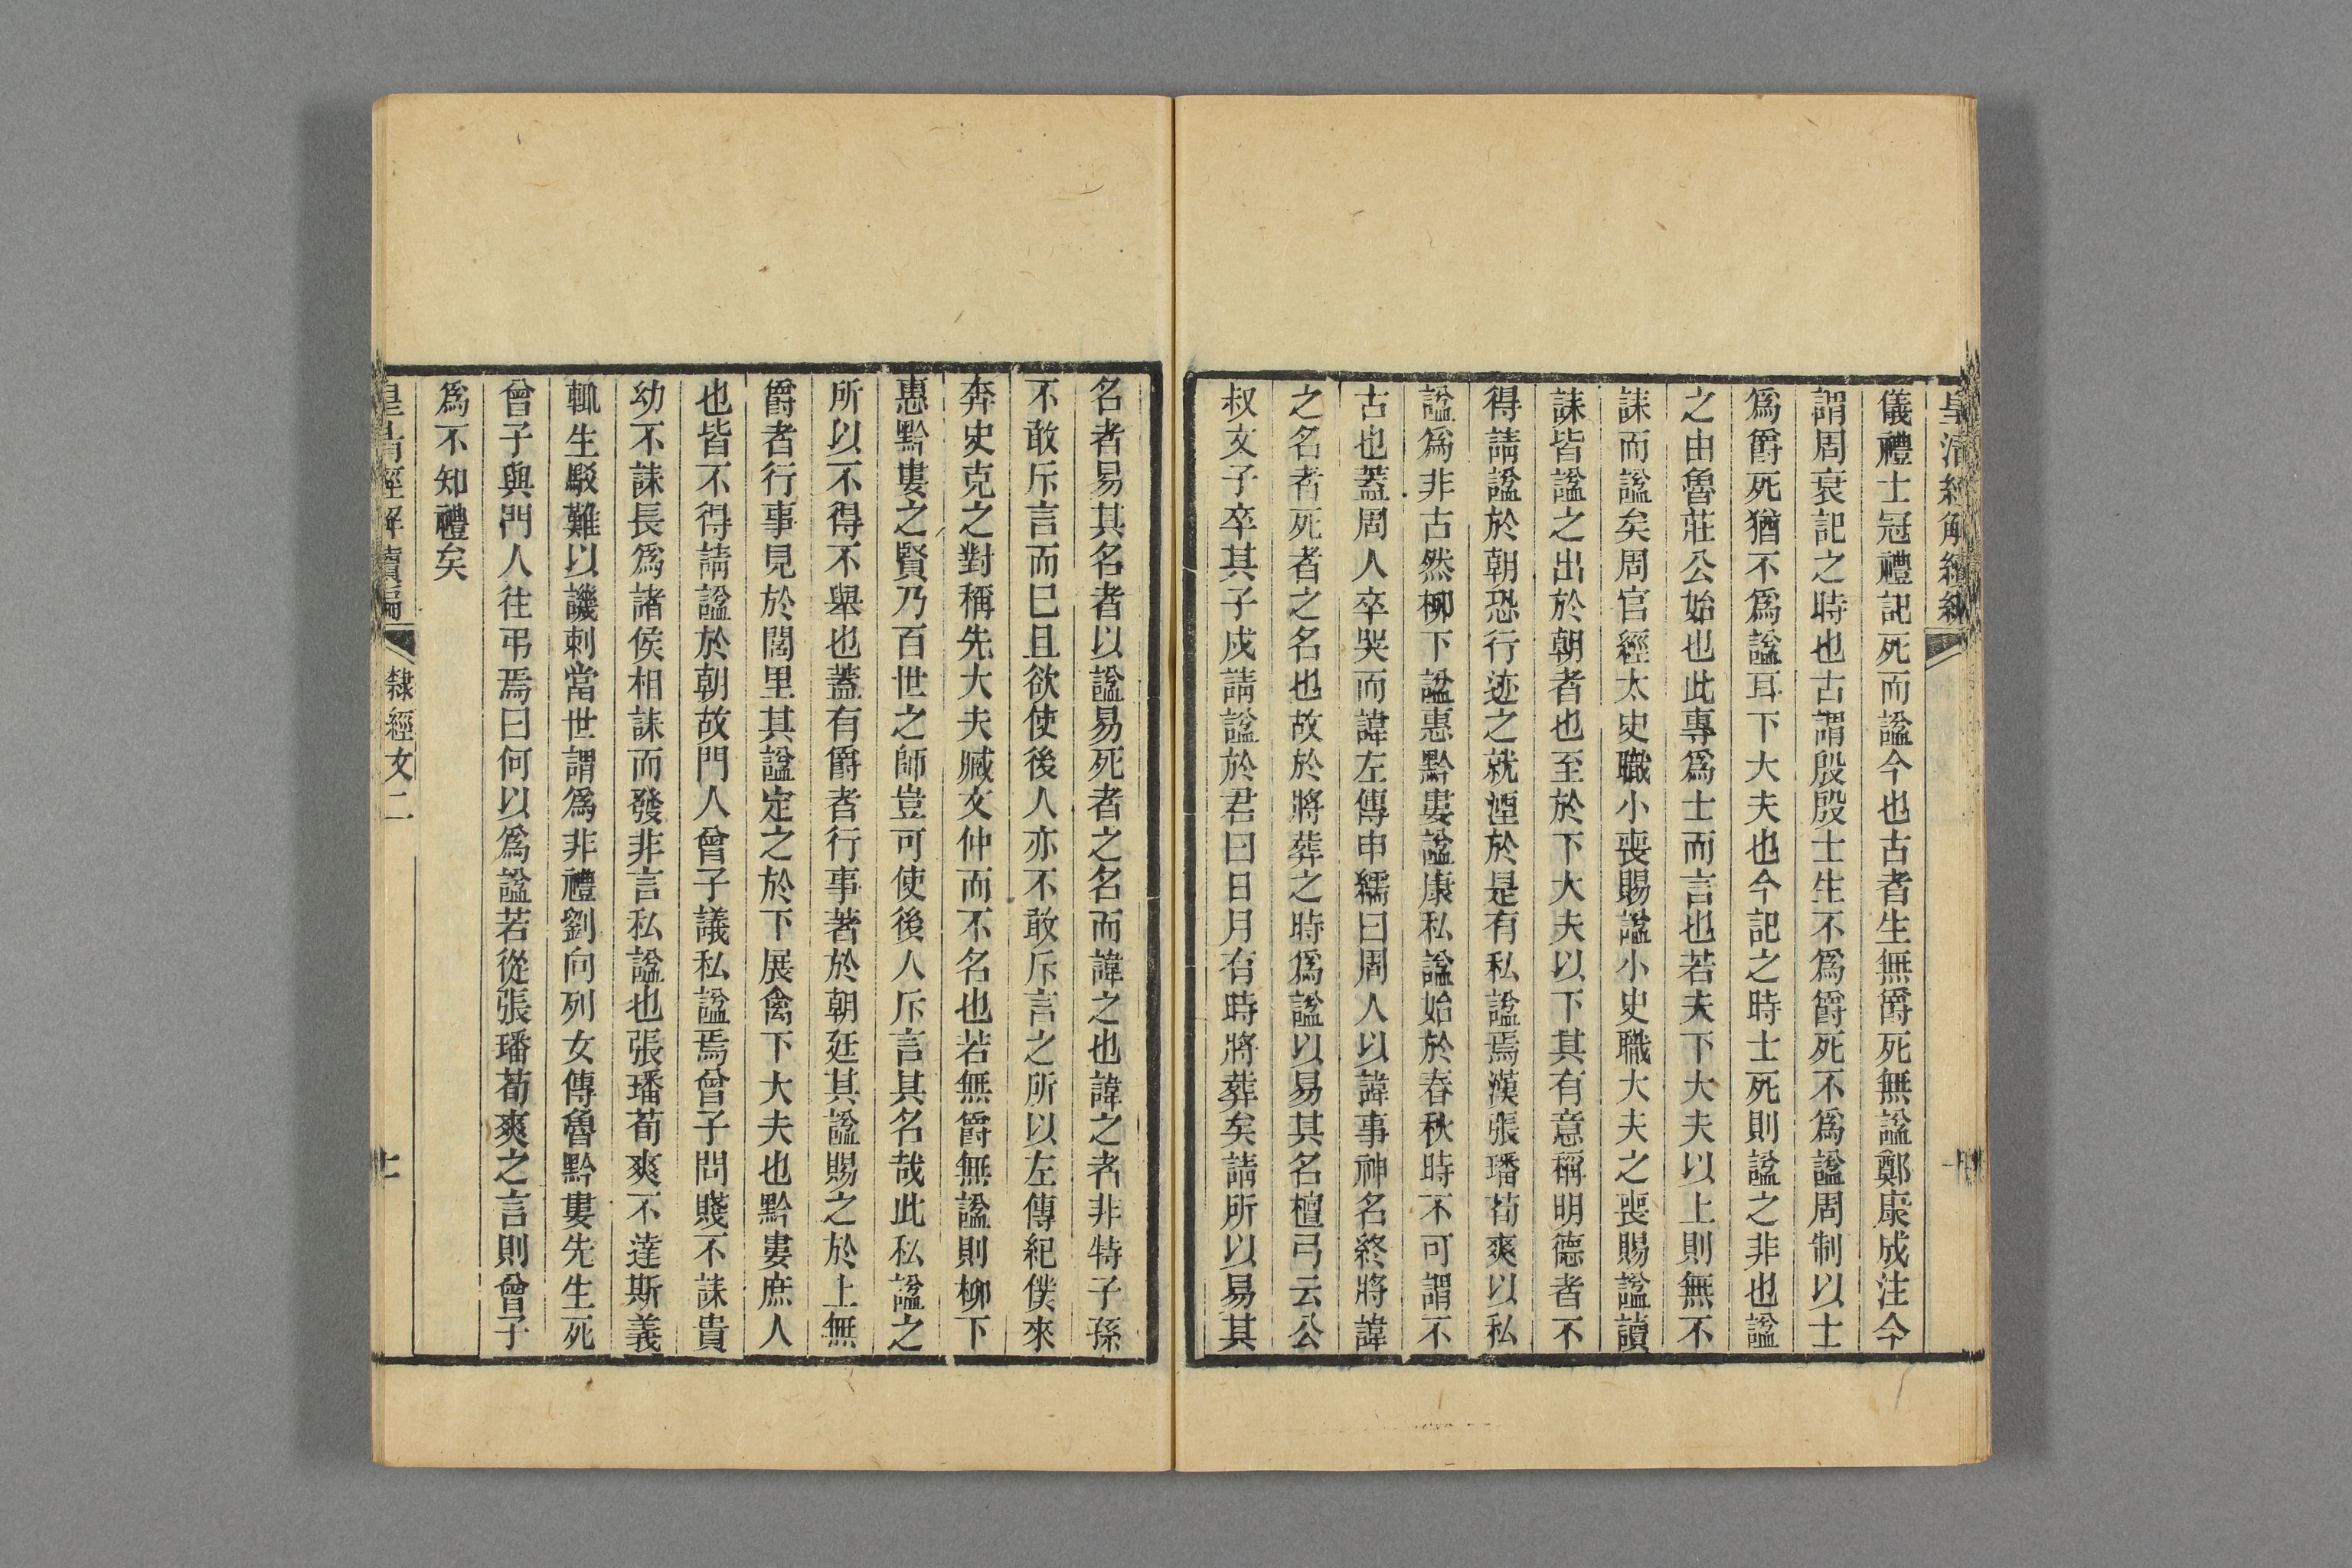 皇清經解續編
儀禮士冠禮記死而諡今也古者生無爵死無諡鄭康成注今
謂周衰記之時也古謂殷殷士生不爲爵死不爲諡周制以士
爲爵死猶不爲諡耳下大夫也今記之時士死則諡之非也諡
之由魯莊公始也此專爲士而言也若夫下大夫以上則無不
誄而諡矣周官經太史職小喪賜諡小史職大夫之喪賜諡讀
誄皆諡之出於朝者也至於下大夫以下其有意稱明德者不
得請諡於朝恐行迹之就湮於是有私諡焉漢張璠荀爽以私
諡爲非古然柳下諡惠黔婁諡康私諡始於春秋時不可謂不
古也蓋周人卒哭而諱左傳申繻曰周人以諱事神名終將諱
之名者死者之名也故於將葬之時爲諡以易其名檀弓云公
叔文子卒其子戍請諡於君曰日月有時將葬矣請所以易其
名者易其名者以諡易死者之名而諱之也諱之者非特子孫
不敢斥言而已且欲使後人亦不敢斥言之所以左傳紀僕來
奔史克之對稱先大夫臧文仲而不名也若無爵無諡則柳下
惠黔婁之賢乃百世之師豈可使後人斥言其名哉此私諡之
所以不得不舉也蓋有爵者行事著於朝廷其諡賜之於上無
爵者行事見於閭里其諡定之於下展禽下大夫也黔婁庶人
也皆不得請諡於朝故門人曾子議私諡焉曾子問賤不誄貴
幼不誄長爲諸侯相誄而發非言私諡也張璠荀爽不達斯義
輒生駁難以譏刺當世謂爲非禮劉向列女傳魯黔婁先生死
曾子與門人往弔焉曰何以爲諡若從張璠荀爽之言則曾子
爲不知禮矣
皇清經解續編 隸經文二 十